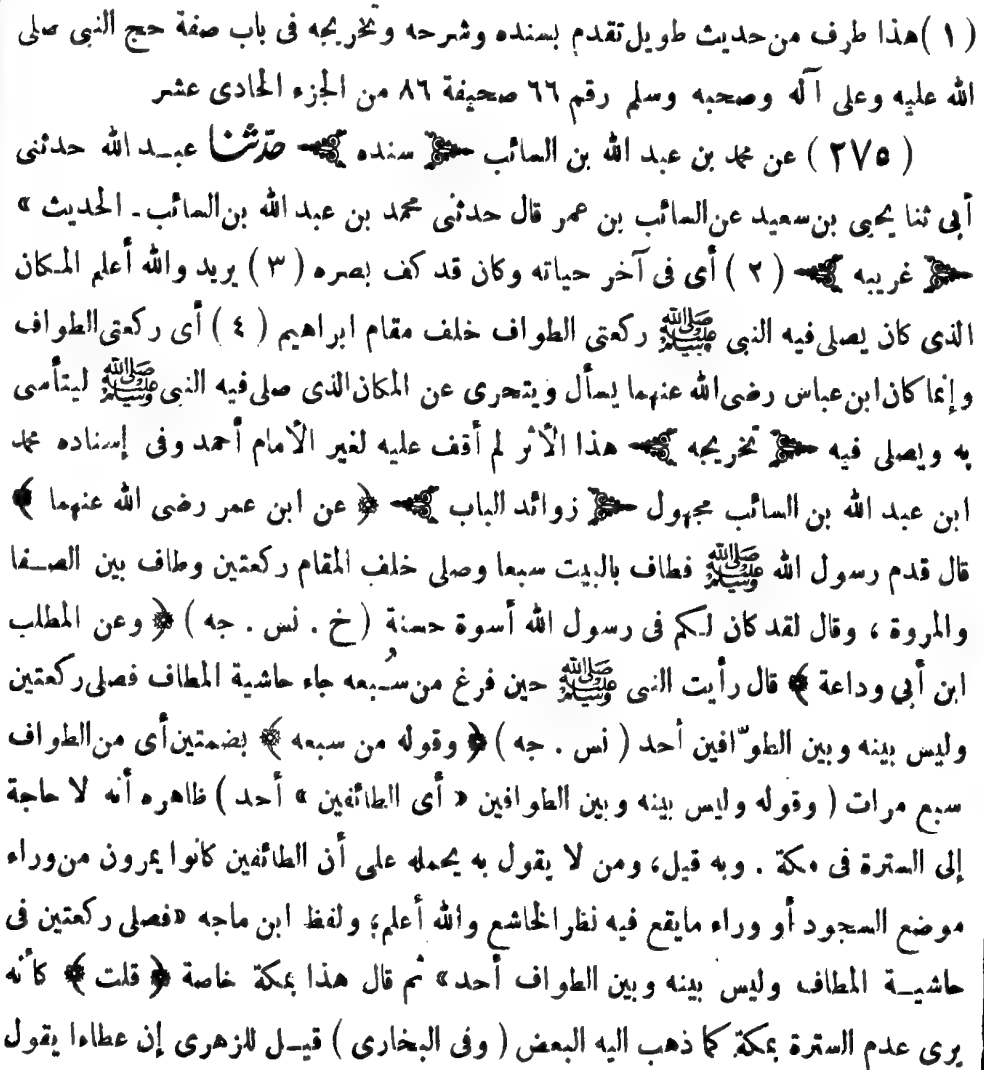 (١) هذا طرف من حديث طويل تقدم بسنده وشرحه وتخريجه فى باب صفة حج النبى صلى
الله عليه وعلى آله وصحبه وسلم رقم ٦٦ صحيفة ٨٦ من الجزء الحادى عشر
(٢٧٥) عن محمد بن عبد الله بن السائب ﴿ سنده ﴾ حدثنا عبد الله حدثنى
أبى ثنا يحيى بن سعيد عن السائب بن عمر قال حدثنى محمد بن عبد الله بن السائب ـ الحديث »
﴿ غريبه ﴾ (٢) أى فى آخر حياته وكان قد كف بصره (٣) يريد والله أعلم المكان
الذى كان يصلى فيه النبى ﷺ ركعتى الطواف خلف مقام ابراهيم (٤) أى ركعتى الطواف
وإنما كان ابن عباس رضى الله عنهما يسأل ويتحرى عن المكان الذى صلى فيه النبى ﷺ ليتأسى
به ويصلى فيه ﴿ تخريجه ﴾ هذا الأثر لم أقف عليه لغير الأمام أحمد وفى إسناده محمد
ابن عبد الله بن السائب مجهول ﴿ زوائد الباب ﴾ ﴿ عن ابن عمر رضى الله عنهما ﴾
قال قدم رسول الله ﷺ فطاف بالبيت سبعا وصلى خلف المقام ركعتين وطاف بين الصفا
والمروة ، وقال لقد كان لكم فى رسول الله أسوة حسنة (خ . نس . جه) ﴿ وعن المطلب
ابن أبي وداعة ﴾ قال رأيت النبى ﷺ حين فرغ من سُبعه جاء حاشية المطاف فصلى ركعتين
وليس بينه وبين الطوّافين أحد (نس . جه) ﴿ وقوله من سبعه ﴾ بضمتين أى من الطواف
سبع مرات (وقوله وليس بينه وبين الطوافين « أى الطائفين » أحد) ظاهره أنه لا حاجة
إلى السترة فى مكة . وبه قيل، ومن لا يقول به يحمله على أن الطائفين كانوا يمرون من وراء
موضع السجود أو وراء مايقع فيه نظر الخاشع والله أعلم؛ ولفظ ابن ماجه «فصلى ركعتين فى
حاشية المطاف وليس بينه وبين الطواف أحد» ثم قال هذا بمكة خاصة ﴿ قلت ﴾ كأنه
يرى عدم السترة بمكة كما ذهب اليه البعض (وفى البخارى) قيل للزهرى إن عطاءا يقول